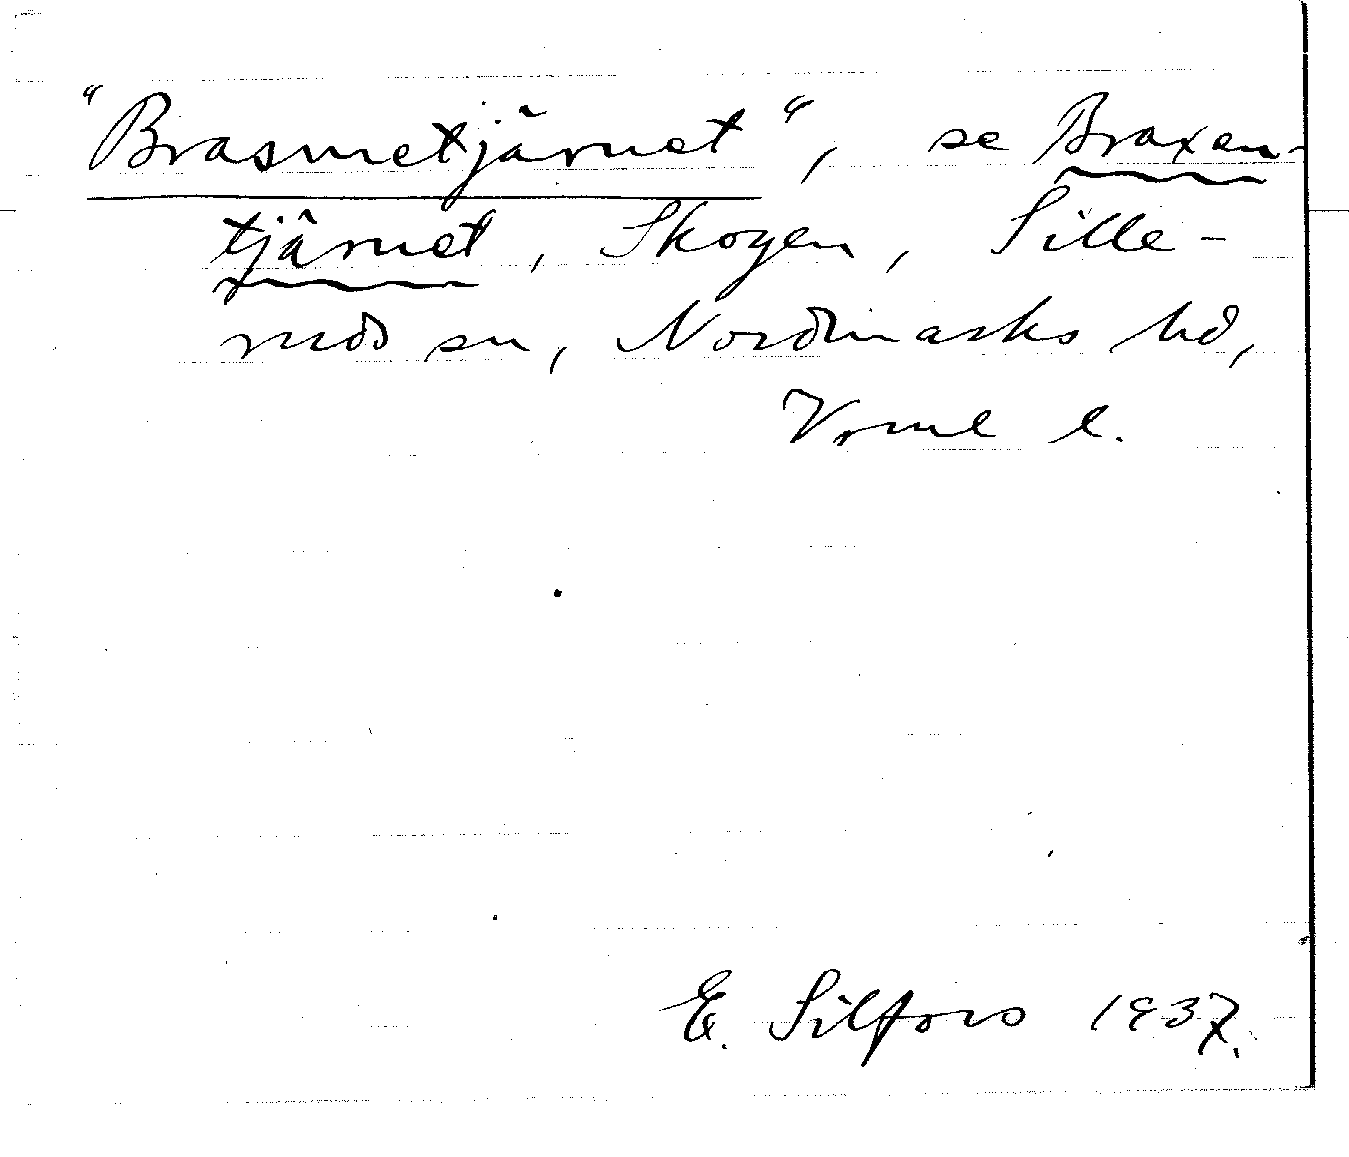 "Brasmetjärnet", se Braxen-
tjärnet, Skogen, Sille-
ruds sn, Nordmarks hd,
Vrml l.
E. Silfors 1937.